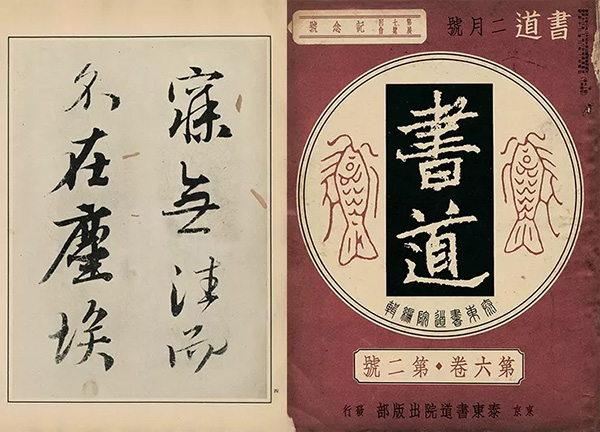 寐無津而
不在塵埃
書道 二月號
記念號
書道
泰東書道院編輯
第六卷・第二號
東京 泰東書道院出版部 發行